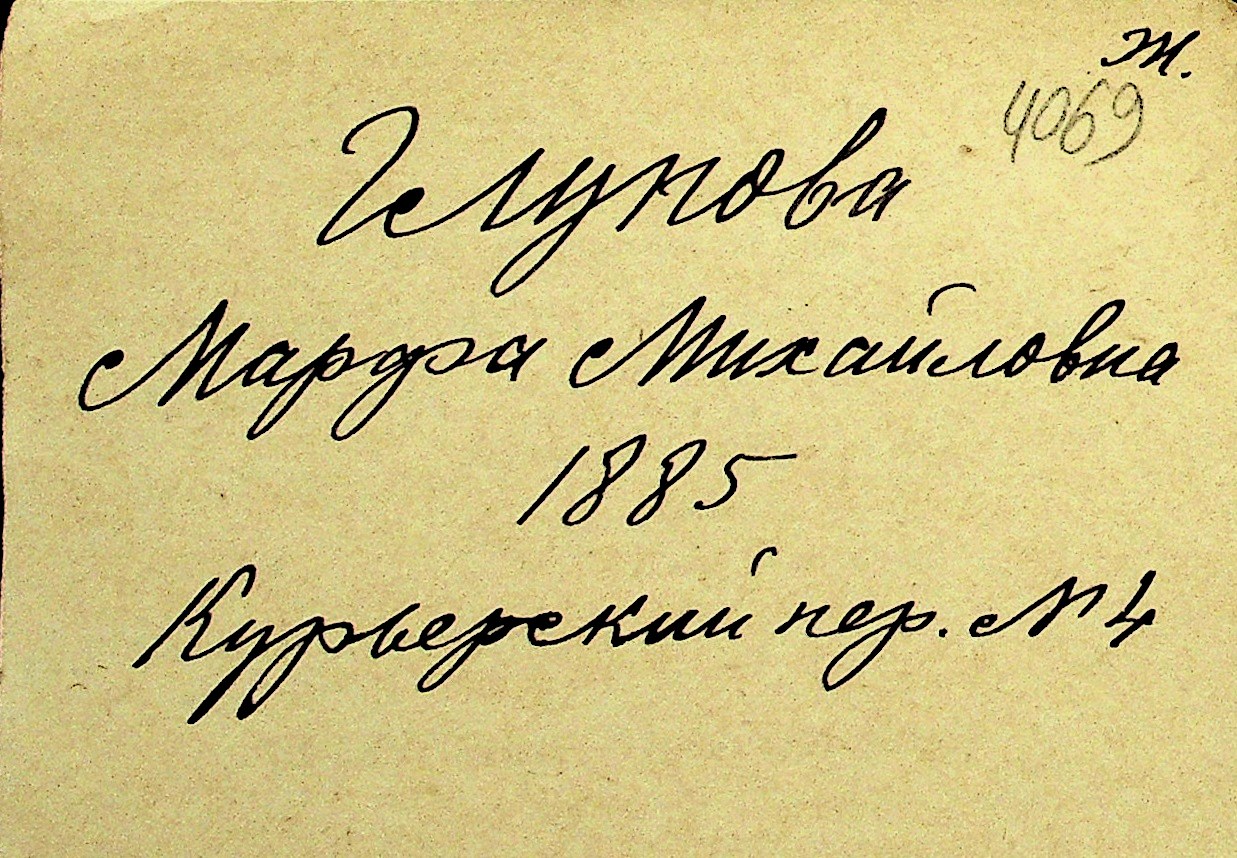 ж.
4069
Глупова
Марфа Михайловна
1885
Курьерский пер. № 4